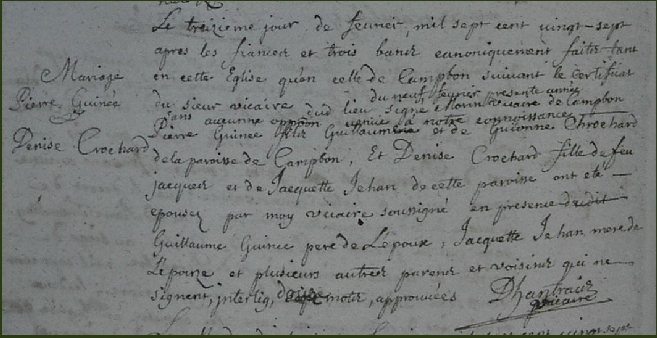 Le treizieme jour de feuvier, mil sept cent vingt-sept
apres les fiances et trois bans canoniquement faites tant
Mariage
en cette Eglise qu'en celle de Campbon suivant le certificat
Pierre Guinée
du sieur vicaire dud lieu signé Morin vicaire de Campbon
du neuf feuvier presente année
sans aucune opposition venuë a notre connoissance
Denise Crochard
Pierre Guinee fils Guillaume et de Guionne Chrochard
de la paroisse de Campbon, Et Denise Crochard fille de feu
Jacques et de Jacquette Jehan de cette paroisse ont eté
epousez par moy vicaire soussigné en presence dudit
Guillaume Guinee pere de Lepoux, Jacquette Jehan mere de
Lepouse et plusieurs autres parens et voisins qui ne
signent, interlig, motz, approuvées
vicaire